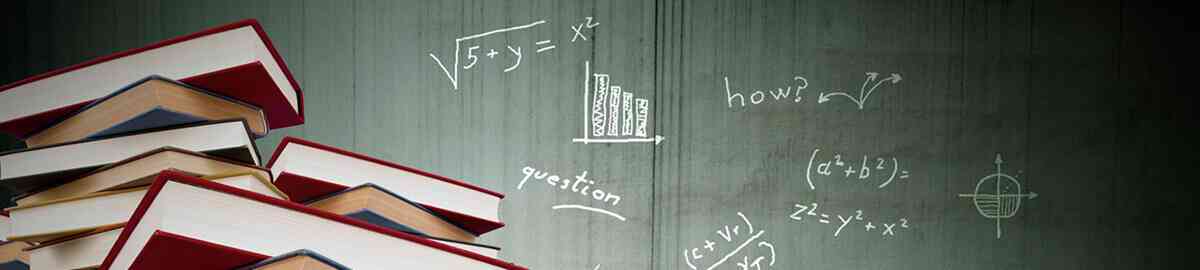 √5+y = x²
how?
question
(a²+b²)=
z²=y²+x²